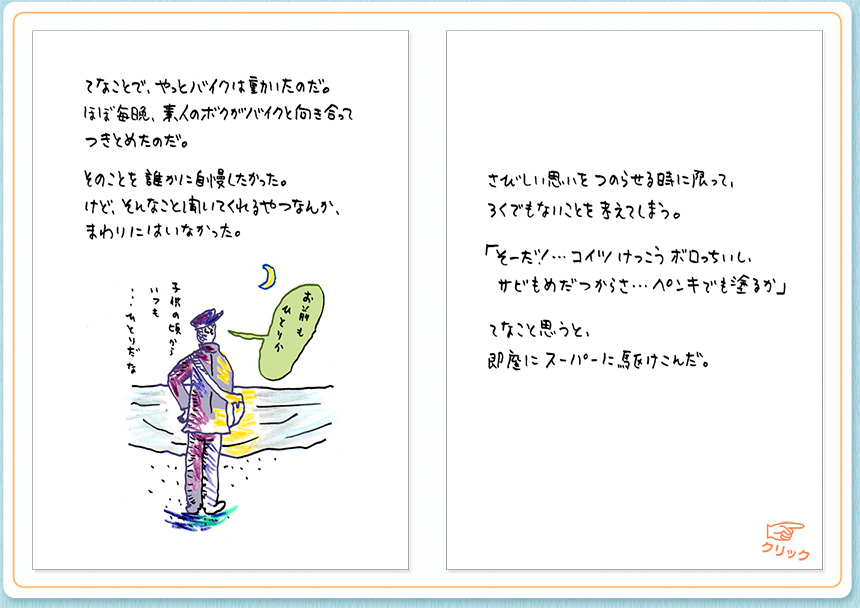 てなことで、やっとバイクは動かいたのだ。
ほぼ毎晩、素人のボクがバイクと向き合って
つきとめたのだ。
そのことを誰かに自慢したかった。
けど、そんなこと聞いてくれるやつなんか、
まわりにはいなかった。
お前も
ひとりか
子供の頃から
いつも
…ひとりだな
さびしい思いをつのらせる時に限って、
ろくでもないことを考えてしまう。
「そーだ!…コイツけっこうボロっちいし、
サビもめだつからさ…ペンキでも塗るか」
てなこと思うと、
即座にスーパーに駆けこんだ。
クリック